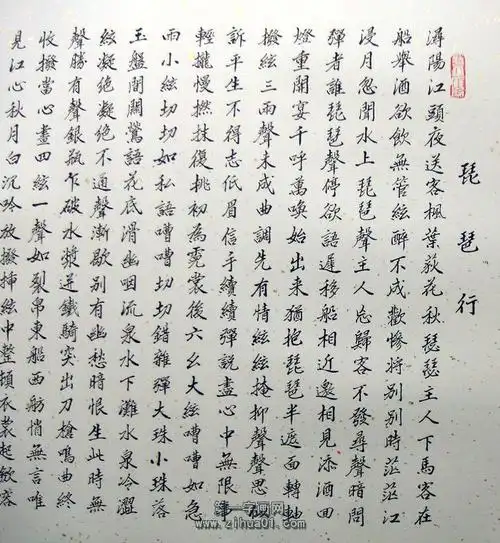 琵琶行
潯陽江頭夜送客楓葉荻花秋瑟瑟主人下馬客在
船舉酒欲飲無管絃醉不成歡慘將別別時茫茫江
浸月忽聞水上琵琶聲主人忘歸客不發尋聲暗問
彈者誰琵琶聲停欲語遲移船相近邀相見添酒回
燈重開宴千呼萬喚始出來猶抱琵琶半遮面轉軸
撥絃三兩聲未成曲調先有情絃絃掩抑聲聲思似
訴平生不得志低眉信手續續彈說盡心中無限事
輕攏慢撚抹復挑初為霓裳後六幺大絃嘈嘈如急
雨小絃切切如私語嘈嘈切切錯雜彈大珠小珠落
玉盤間關鶯語花底滑幽咽流泉水下灘水泉冷澀
絃凝絕凝絕不通聲漸歇別有幽愁暗恨生此時無
聲勝有聲銀瓶乍破水漿迸鐵騎突出刀槍鳴曲終
收撥當心畫四絃一聲如裂帛東船西舫悄無言唯
見江心秋月白沉吟放撥插絃中整頓衣裳起斂容
第一字画网
www.zihua01.com